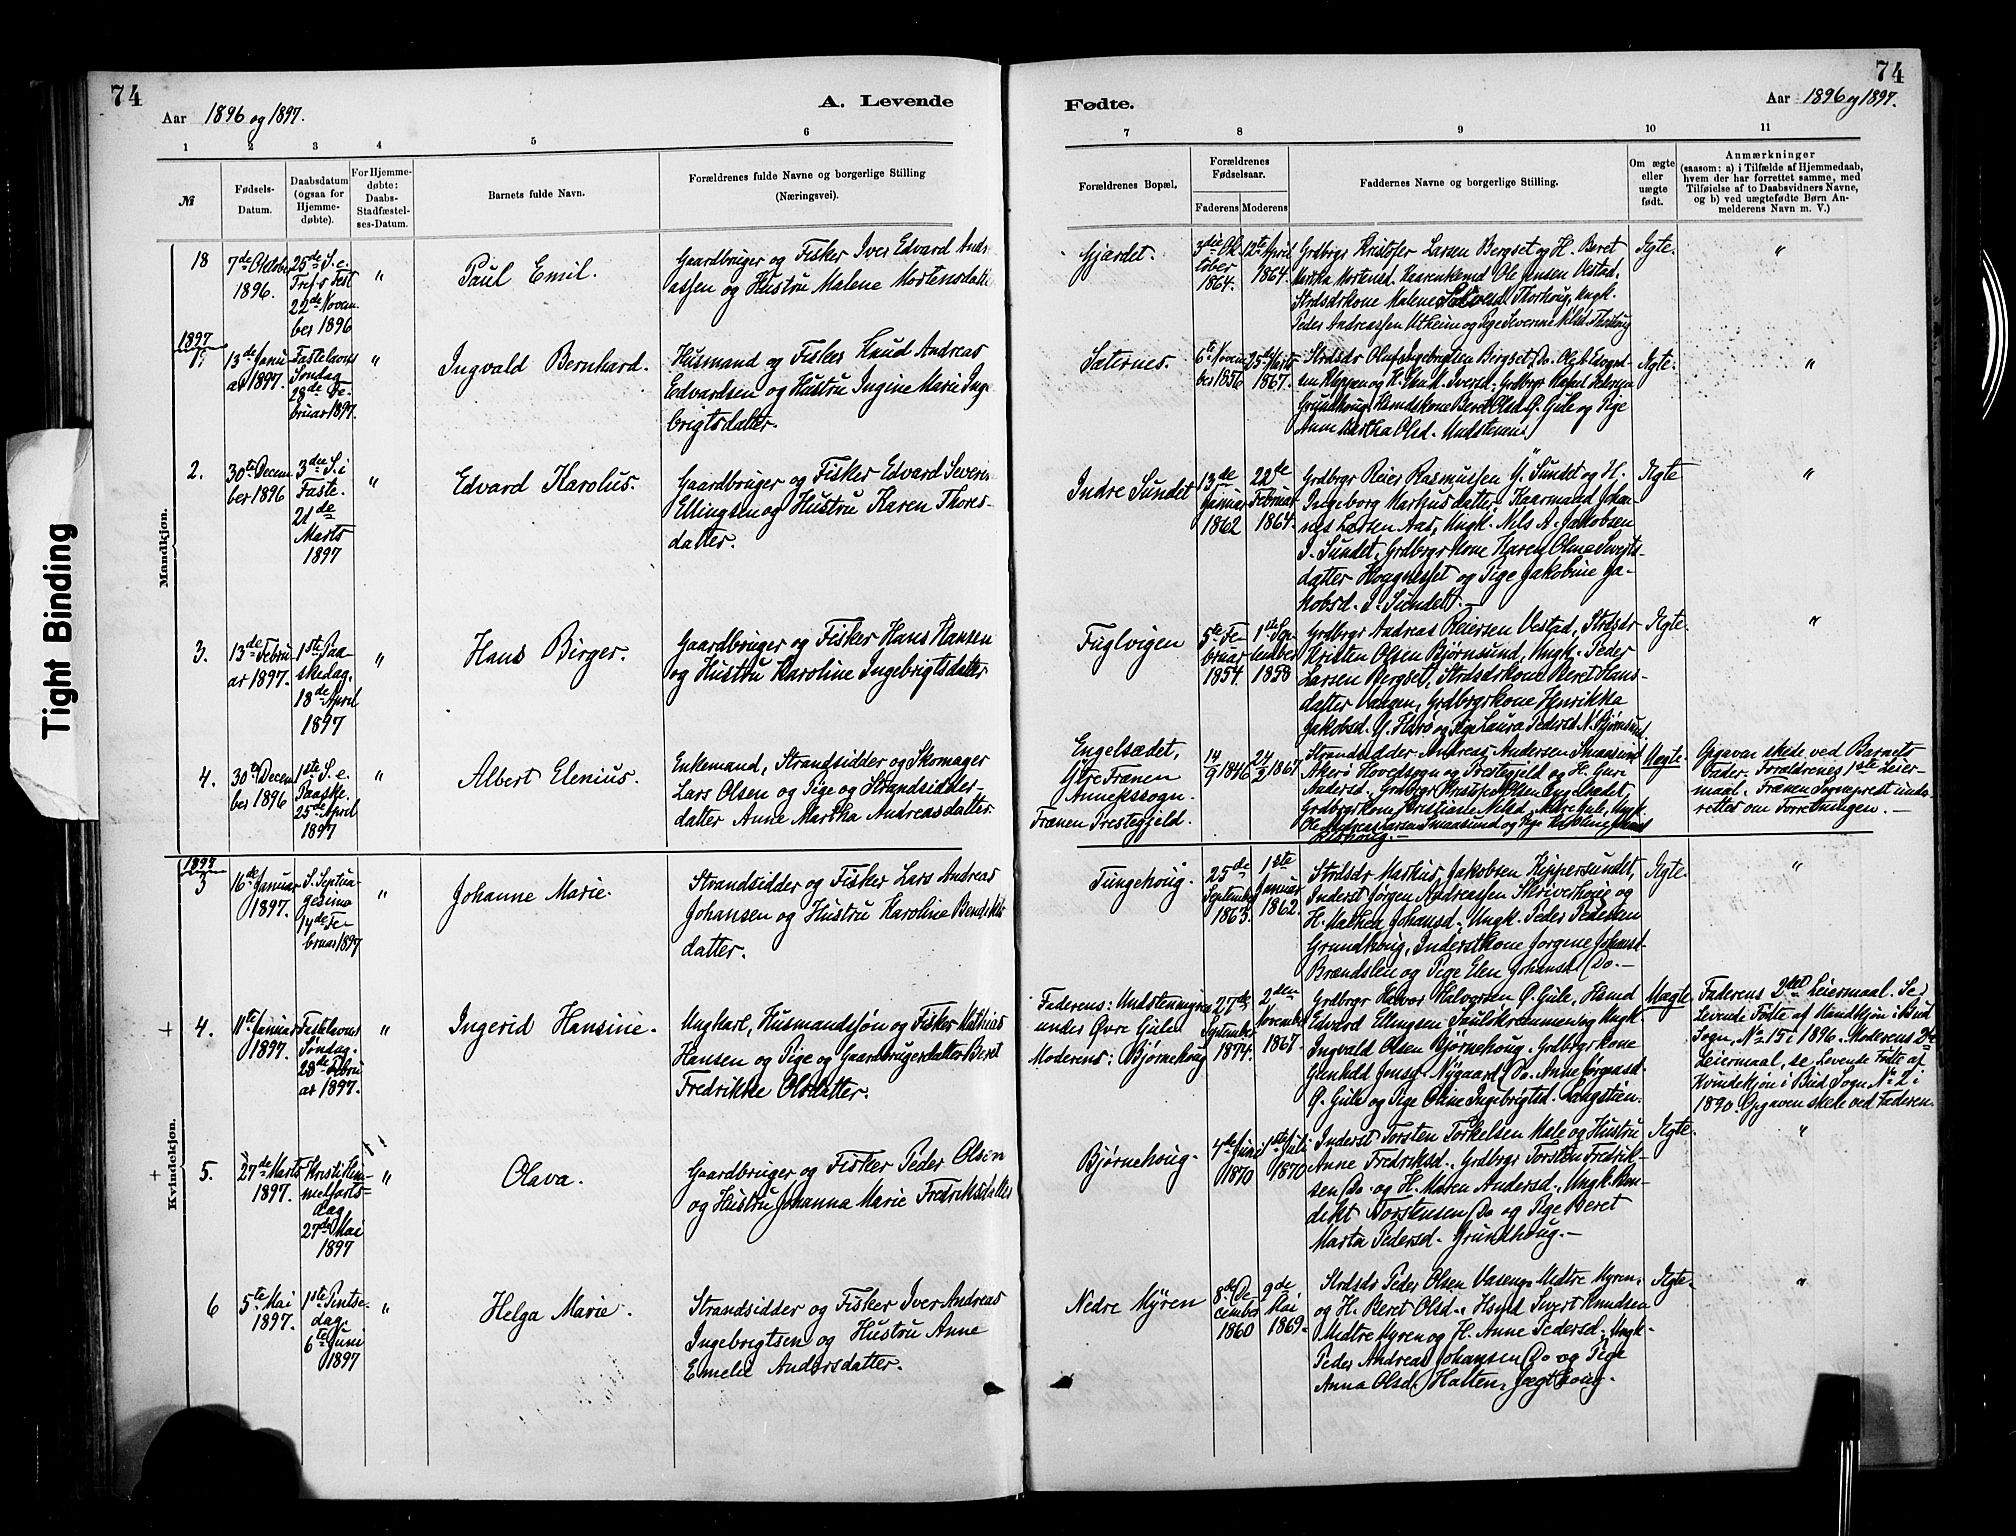 74
Aar 1896 og 1897.
A. Levende
1 2 3 4 5 6
№
Fødsels-
Datum.
Daabsdatum
(ogsaa for
Hjemme-
døbte).
For Hjemme-
døbte:
Daabs-
Stadfæstel-
ses-Datum.
Barnets fulde Navn.
Forældrenes fulde Navne og borgerlige Stilling
(Næringsvei).
Tight Binding
Mandkjøn.
18
7de Oktober
1896.
25de S. e.
Tref-s Fest
22de Novem
ber 1896
"
Paul Emil.
Gaardbruger og Fisker Iver Edvard Andr
assen og Hustru Malene Mortensdatter
1897
1.
13de Janu
ar 1897.
Fastelavns
Søndag
28de Fe-
bruar 1897.
"
Ingvald Bernhard.
Husmand og Fisker Knud Andreas
Edvardsen og Hustru Ingine Marie Inge
brigtsdatter.
2.
30te Decem
ber 1896
3die S. i
Faste.
21de
Marts
1897
"
Edvard Karolus.
Gaardbruger og Fisker Edvard Severin
Ellingsen og Hustru Karen Thores-
datter.
3.
13de Febru
ar 1897.
1ste Paa-
skedag.
18de April
1897
"
Hans Birger.
Gaardbruger og Fisker Hans Hansen
og Hustru Karoline Ingebrigtsdatter
4.
30te Decem
ber 1896
1ste S. e.
Paaske.
25de April
1897
"
Albert Elenius.
Enkemand, Strandsidder og Skomager
Lars Olsen og Pige og Strandsidder-
datter Anne Martha Andreasdatter.
Kvindekjøn.
1897
3
16de Januar
1897.
S. Septua
gesima
14de Fe-
bruar 1897
"
Johanne Marie.
Strandsidder og Fisker Lars Andreas
Johansen og Hustru Karoline Bendikts
datter.
+
4.
11te Januar
1897.
Fastelavns
Søndag.
28de Febru
ar 1897.
"
Ingerid Hansine.
Ungkarl, Husmandssøn og Fisker Mathias
Hansen og Pige og Gaardbrugerdatter Beret
Fredrikke Olsdatter.
+
5.
27de Marts
1897.
Kristi Him
melfarts-
dag
27de Mai
1897
"
Olava.
Gaardbruger og Fisker Peder Olsen
og Hustru Johanna Marie Fredriksdatter
6
5te Mai
1897.
1ste Pintse-
dag.
6te Juni
1897
"
Helga Marie.
Strandsidder og Fisker Iver Andreas
Ingebrigtsen og Hustru Anne
Emelie Andersdatter.
74
Fødte.
Aar 1896 og 1897.
7 8 9 10 11
Forældrenes Bopæl.
Forældrenes
Fødselsaar.
Faderens Moderens
Faddernes Navne og borgerlige Stilling.
Om ægte
eller
uægte
født.
Anmærkninger
(saasom: a) i Tilfælde af Hjemmedaab,
hvem der har forrettet samme, med
Tilføielse af to Daabsvidners Navne,
og b) ved uægtefødte Børn An-
melderens Navn m. V.)
Gjærdet.
3die Ok
tober
1864.
12te April
1864.
Grdbrgr Kristofer Larsen Bergset og H. Beret
Martha Mortensd. Ole Jensen Vestad.
Strdsdrkone Malene Thorhoug, Ungk.
Peder Andreassen Utheim og Pige
Ægte.
"
Sæternes.
6te Novem
ber 1856
25de Marts
1867.
Strdsdr Oluf Ingebrigtsen Bergset,
og H. Iversd.
Grundhoug, Hsmdskone Beret Olsd Ø. Gule og Pige
Anne Martha Olsd.
Ægte.
"
Indre Sundet
13de
Januar
1862
22de
Februar
1864.
Grdbrgr Reier Rasmussen Y. Sundet og H.
Ingeborg Markusdatter, Johan-
nes Larsen Aas, Ungk. Nils A. Jakobsen
I. Sundet, Grdbrgrkone Karen Oline Sivertz-
datter og Pige Jakobine Ja-
kobsd. I. Sundet.
Ægte
"
Fuglvigen
5te Fe-
bruar
1854.
1ste Sep-
tember
1858
Grdbrgr Andreas Reiersen Vestad, Strdsdr
Kristen Olsen Bjørnsund, Ungk. Peder
Larsen Bergset, Strdsdrkone Beret Hans-
datter Vaagen, Grdbrgrkone Henrikka
Jakobsd. Y. Harø og Pige Laura Pedersd. N. Bjørnsund
Ægte.
"
Engelsædet,
Ytre Frænen
Annekssogn.
Frænen Prestegjeld.
14
9 1846
24
2 1867
Strandsidder Andreas Andersen Smaasund
Akerø Hovedsogn og Prestegjeld og H. Guri
Andersd. Grdbrgr Olsen Engelsædet,
Grdbrgrkone Kristiane Nilsd. Ungk.
Ole Andreas Larsen Smaasund og Pige
Uægte.
Opgaven skede ved Barnets
Fader. Forældrenes 1ste Leier-
maal. Frænen Sogneprest under-
rettet om Forretningen.
Tungehoug.
25de
September
1863.
1ste
Januar
1862.
Strdsdr Markus Jakobsen Kippersundet,
Inderst Jørgen Andreassen Skriverhoug og
H. Mathea Johansd. Ungk. Peder Pedersen
Grundhoug, Inderstkone Jørgine Johansd.
Brændslen og Pige Elen Johansd. Do.
Ægte.
"
Faderens: Undstenmyren
under Øvre Gule
Moderens: Bjørnehoug
27de
September
1874.
2den
November
1867.
Grdbrgr Halvor Halvorsen Ø. Gule, Hsmd
Edvard Ellingsen og Ungk.
Ingvald Olsen Bjørnehoug. Grdbrgrkone
Gunhild Jonsd. Nygaard, Do. Anne Jørgensd.
Ø. Gule og Pige Oline Ingebrigtsd. Langstien.
Uægte.
Faderens 2det Leiermaal. Se
Levende Fødte af Mandkjøn i Bud
Sogn, No 15 i 1896. Moderens 2det
Leiermaal, se Levende Fødte af
Kvindekjøn i Bud Sogn No 2 i
1890. Opgaven skede ved Faderen.
Bjørnehoug.
4de Juni
1870
1ste Juli
1870
Inderst Torsten Torkelsen Male og Hustru
Anne Fredriksd. Grdbrgr Torsten Fredrik-
sen Do. og H. Maren Andersd. Ungk. Ben-
dikt Torstensen Do og Pige Beret
Marta Pedersd. Grundhoug.
Ægte.
"
Nedre Myren
8de De
cember
1860
9de
Mai
1869.
Strdsdr Peder Olsen Vaseng, Midtre Myren
og H. Beret Olsd. Hsmd Sivert Knudsen
Midtre Myren og H. Anne Pedersd. Ungk.
Peder Andreas Johansen Do og Pige
Anna Olsd. Hatten, Jægthoug.
Ægte.
"